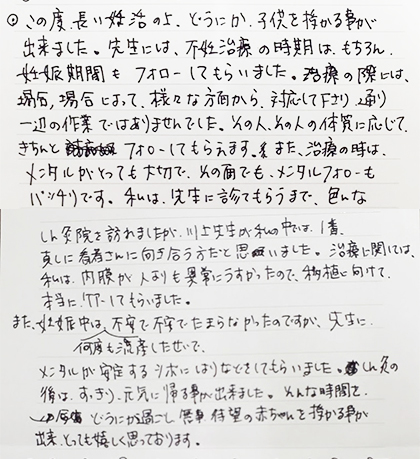 ◎ この度、長い妊活のよ、どうにか、子供を授かる事が
出来ました。先生には、不妊治療の時期は、もちろん、
妊娠期間もフォローしてもらいました。治療の際には、
場合、場合によって、様々な方面から、対応して下さり、通り
一辺の作業ではありませんでした。その人、その人の体質に応じて、
きちんとフォローしてもらえます。また、治療の時は、
メンタルがとっても大切で、その面でも、メンタルフォローも
バッチリです。私は、先生に診てもらうまで、色んな
しん灸院を訪れましたが、川上先生が私の中では、1番、
真しに患者さんに向き合う方だと思いました。治療に関しては、
私は、内膜が人よりも異常にうすかったので、移植に向けて、
本当に、してもらいました。
また、妊娠中は、不安で不安でたまらなかったのですが、先生に、
何度も流産したせいで、
メンタルが安定するツボにはりなどをしてもらいました。しん灸の
後は、すっきり、元気に帰る事が出来ました。そんな時間を、
どうにか過ごし、待望の赤ちゃんを授かる事が
出来、とっても嬉しく思っております。